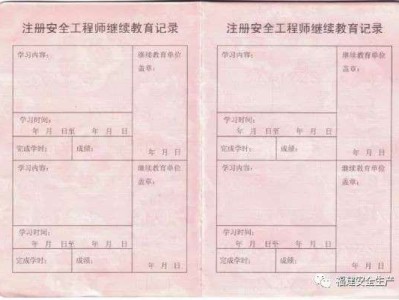 注册安全工程师继续教育记录
学习内容：
继续教育单位
盖章：
学习时间：
年 月 日至 年 月 日
完成学时：
成绩：
年 月 日
学习内容：
继续教育单位
盖章：
学习时间：
年 月 日至 年 月 日
完成学时：
成绩：
年 月 日
注册安全工程师继续教育记录
学习内容：
继续教育单位
盖章：
学习时间：
年 月 日至 年 月 日
完成学时：
成绩：
年 月 日
学习内容：
继续教育单位
盖章：
学习时间：
年 月 日至 年 月 日
完成学时：
成绩：
年 月 日
福建安全生产